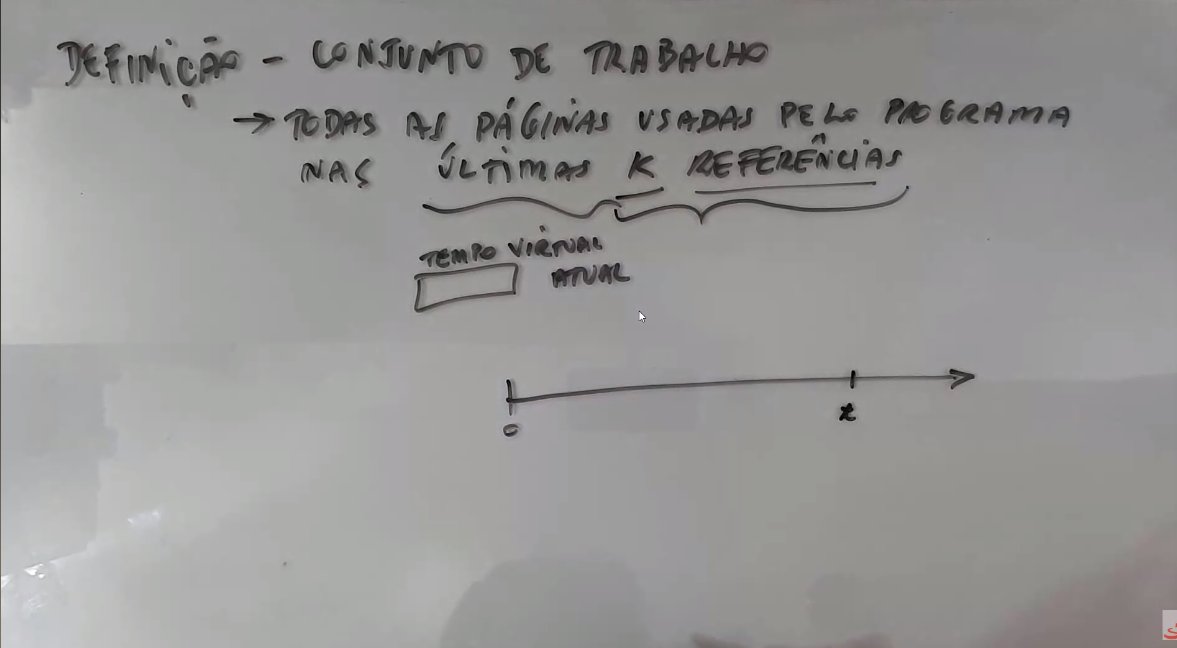 DEFINIÇÃO - CONJUNTO DE TRABALHO
→ TODAS AS PÁGINAS USADAS PELO PROGRAMA
NAS ÚLTIMAS K REFERÊNCIAS
TEMPO VIRTUAL
ATUAL
0
t